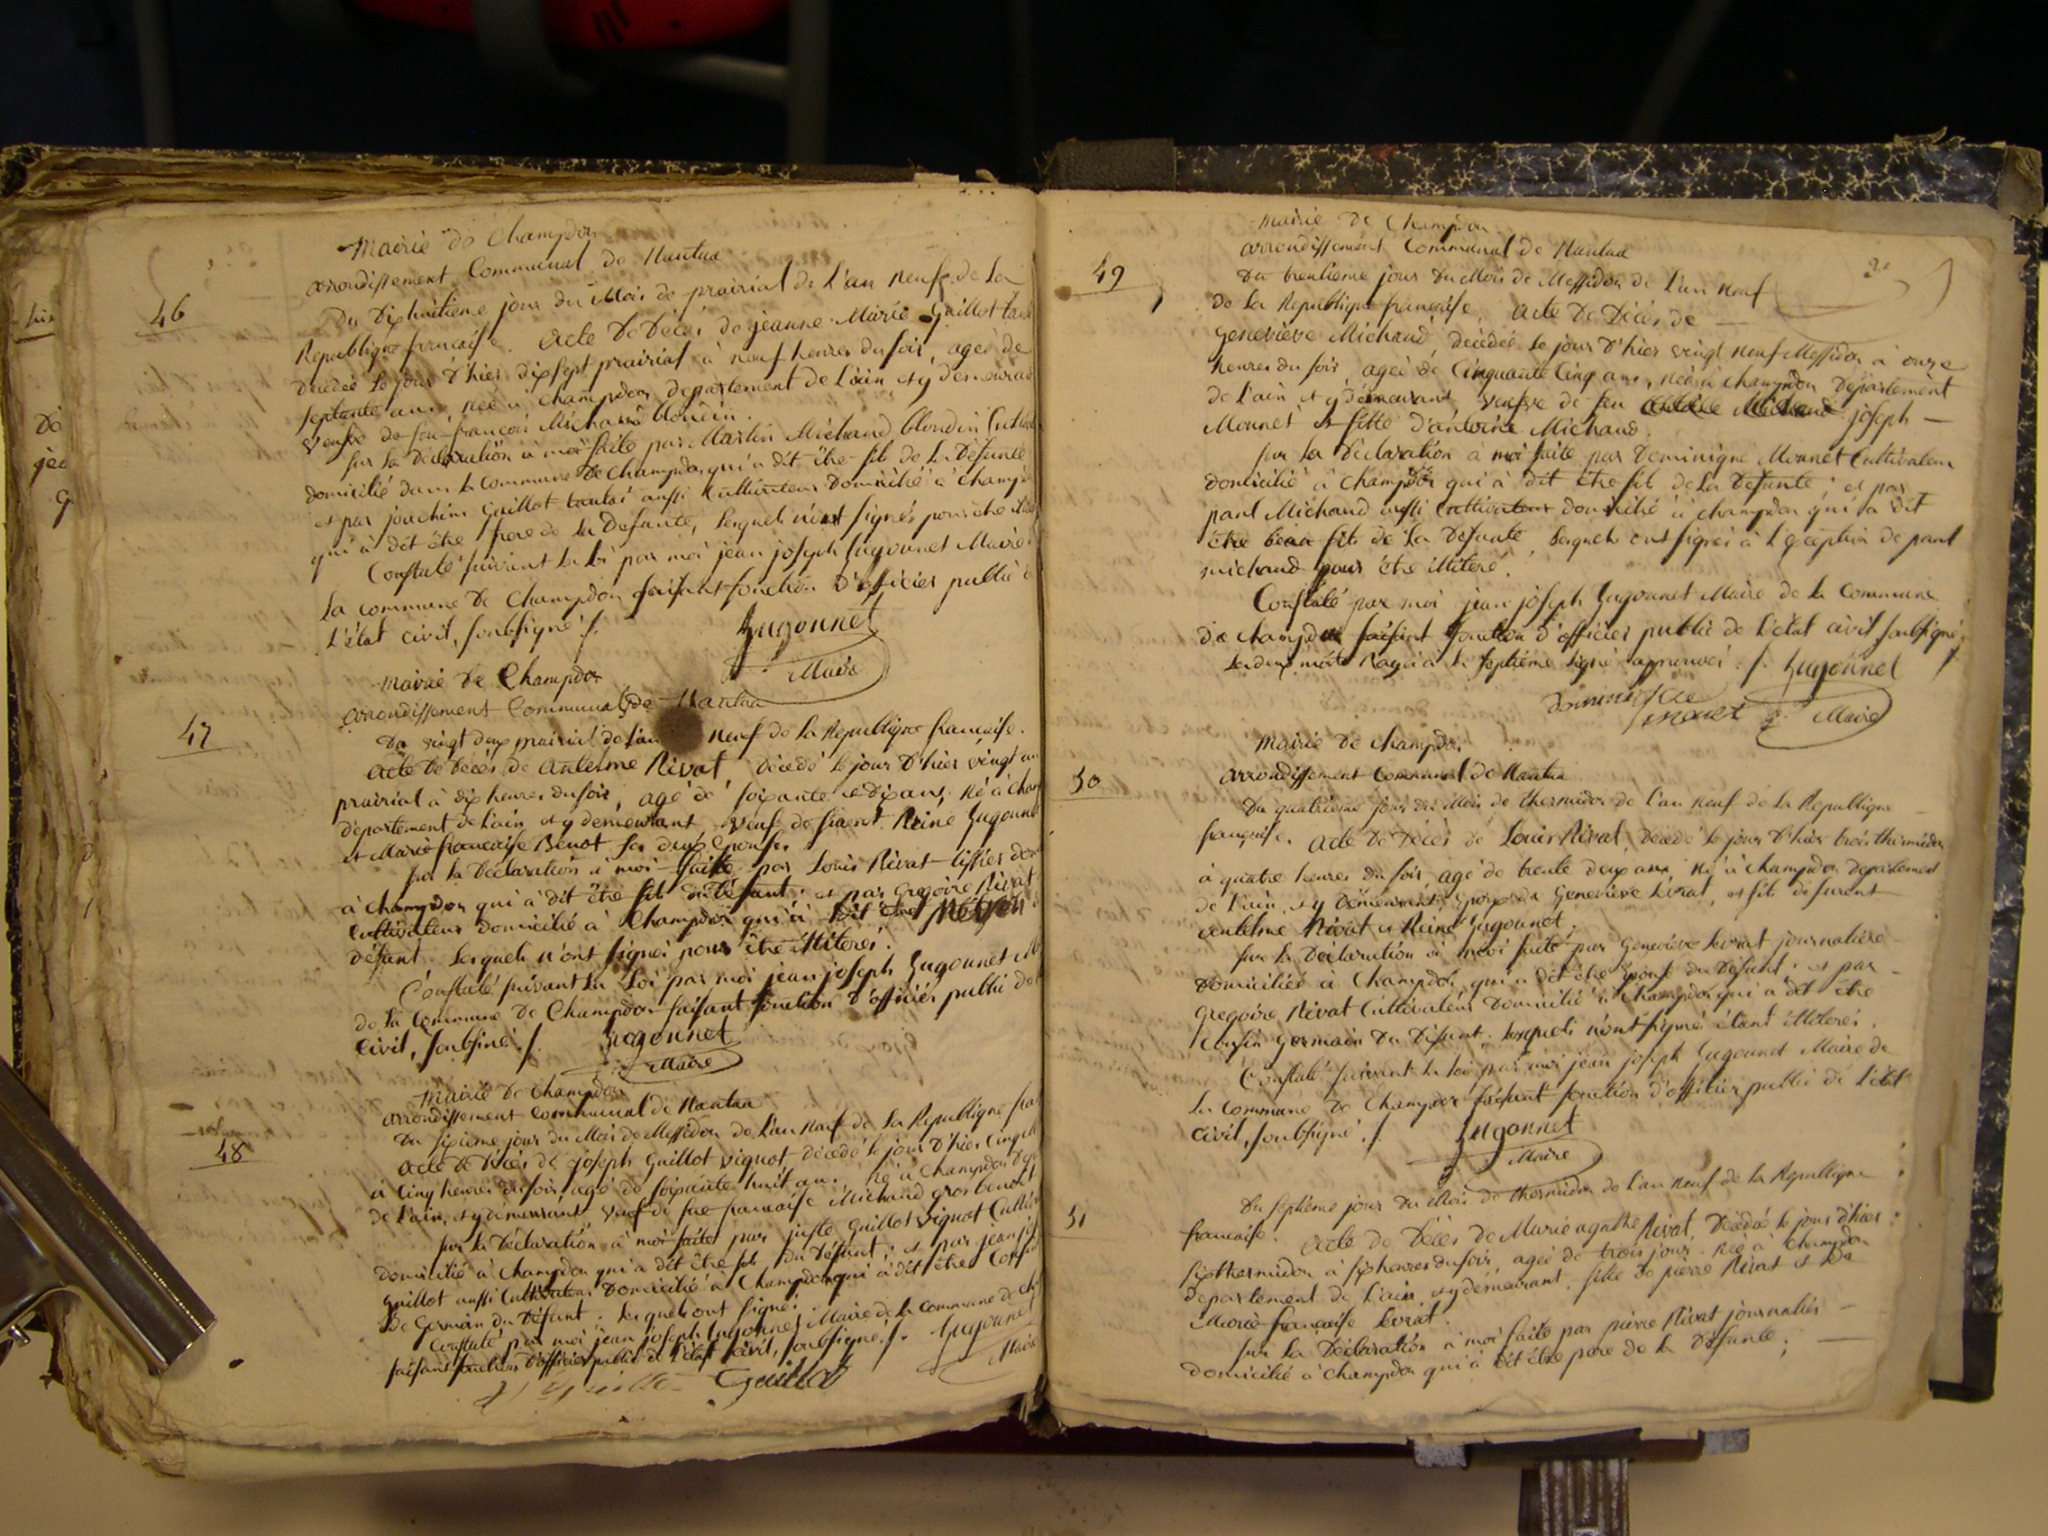 Mairie de Champdor
arrondissement Communal de Nantua
46
Du Dixhuitieme jour du Mois de prairial de L'an neuf de La
Republique francaise. Acte De Décés de jeanne Marie Guillot
Décédée le jour d'hier dixsept prairial à neuf heures du soir, ageé de
septante ans, neé à champdor departement de L'ain et y demeurant
veufve de feu francois Michaud blondin.
sur La Déclaration à moi faite par Martin Michaud blondin
domicilié dans la commune De Champdor qui a dit être fils de La Défunte
et par joachim Guillot aussi Cultivateur Domicilié à champdor
qui à dit être frere de La Defunte, lesquels n'ont signés pour être
Constaté suivant La Loi par moi jean joseph Gugonnet Maire
La commune De Champdor faisant fonction D'officier public
L'état civil, soubsigné ./.
Gugonnet
Maire
Mairie De Champdor
arrondissement Communal de Nantua
47
Du vingt deux prairial de L'an neuf de La Republique francaise.
Acte De Décés de Antelme Rivat Décédé le jour D'hier vingt un
prairial à dix heures du soir, agé de soixante et dix ans, né à
Département de L'ain et y demeurant, veuf de Reine Gugonnet
et Marie francaise Benot ses deux épouses.
sur La Déclaration à moi faite par Louis Rivat
à champdor qui à dit être fils du Défunt; et par Gregoire Rivat
Cultivateur domicilié à Champdor qui à dit être
défunt. Lesquels n'ont signés pour être illiterés.
Constaté suivant La Loi par moi jean joseph Gugonnet
de La commune De Champdor faisant fonction D'officier public de
Civil, soubsiné ./. Gugonnet
Maire
Mairie De Champdor
arrondissement communal de Nantua
48
Du sixieme jour du Mois de Messidor de L'an neuf de La Republique
Acte De Décés de joseph Guillot vignot décédé le jour D'hier
à Cinq heures du soir, agé de soixante huit ans. né à Champdor
de L'ain, et y demeurant veuf de feu francaise Michaud gros benoit
sur La Déclaration à moi faite par juste Guillot vignot
domicilié à Champdor qui a dit être fils du Défunt; et par jean
Guillot aussi Cultivateur Domicilié à Champdor qui à dit être
De Germain du Défunt. Lesquels ont signé.
Constaté par moi jean joseph Gugonnet Maire de La commune de
faisant fonction D'officier public de L'état civil, soubsigné ./. Gugonnet
Maire
Guillot
Mairie De Champdor
arrondissement Communal de Nantua
49
Du trentieme jour Du Mois de Messidor de L'an neuf
de La Republique francaise. Acte De Décés de
Genevieve Michaud, décédée le jour D'hier vingt neuf Messidor à onze
heures du soir, ageé de Cinquante Cinq ans, neé à champdor Departement
de L'ain et y demeurant, veufve de feu joseph
Monnet et fille d'antoine Michaud.
sur La Déclaration à moi faite par Dominique Monnet Cultivateur
Domicilié à Champdor qui à dit être fils de La Défunte; et par
paul Michaud aussi Cultivateur domicilié à champdor qui à dit
être beau fils de La Défunte, Lesquels ont signés à L'exception de paul
michaud pour être illiteré.
Constaté par moi jean joseph Gugonnet Maire de La Commune
De Champdor faisant fonction d'officier public de L'état civil soubsigné,
Les deux mots à La septieme ligne approuvés ./. Gugonnet
Maire
Mairie De Champdor
50
arrondissement Communal de Nantua
Du quatrieme jour du Mois de thermidor de L'an neuf de La Republique
francaise. Acte De Décés de Louis Rivat, Décédé le jour D'hier trois thermidor
à quatre heures du soir, agé de trente deux ans, né à Champdor Departement
de L'ain, et y Demeurant, époux de Genevieve Levrat, et fils de
antelme Rivat et Reine Gugonnet.
sur La Déclaration à moi faite par Genevieve Levrat journaliere
Domiciliée à Champdor qui à dit être épouse du Défunt; et par
Gregoire Rivat Cultivateur Domicilié à Champdor qui à dit être
Cousin Germain Du Défunt, Lesquels n'ont signés étant illiterés.
Constaté suivant La Loi par moi jean joseph Gugonnet Maire de
La commune De Champdor faisant fonction d'officier public de L'état
civil, soubsigné ./. Gugonnet
Maire
51
Du septieme jour du Mois de thermidor de L'an neuf de La Republique
francaise. Acte De Décés de Marie agathe Rivat, Décédée le jour d'hier
six thermidor à six heures du soir, ageé de trois jours. neé à Champdor
departement de L'ain, et y demeurant, fille de pierre Rivat et De
Marie francaise Levrat.
sur La Déclaration à moi faite par pierre Rivat journalier
domicilié à Champdor qui à dit être pere de La Défunte;